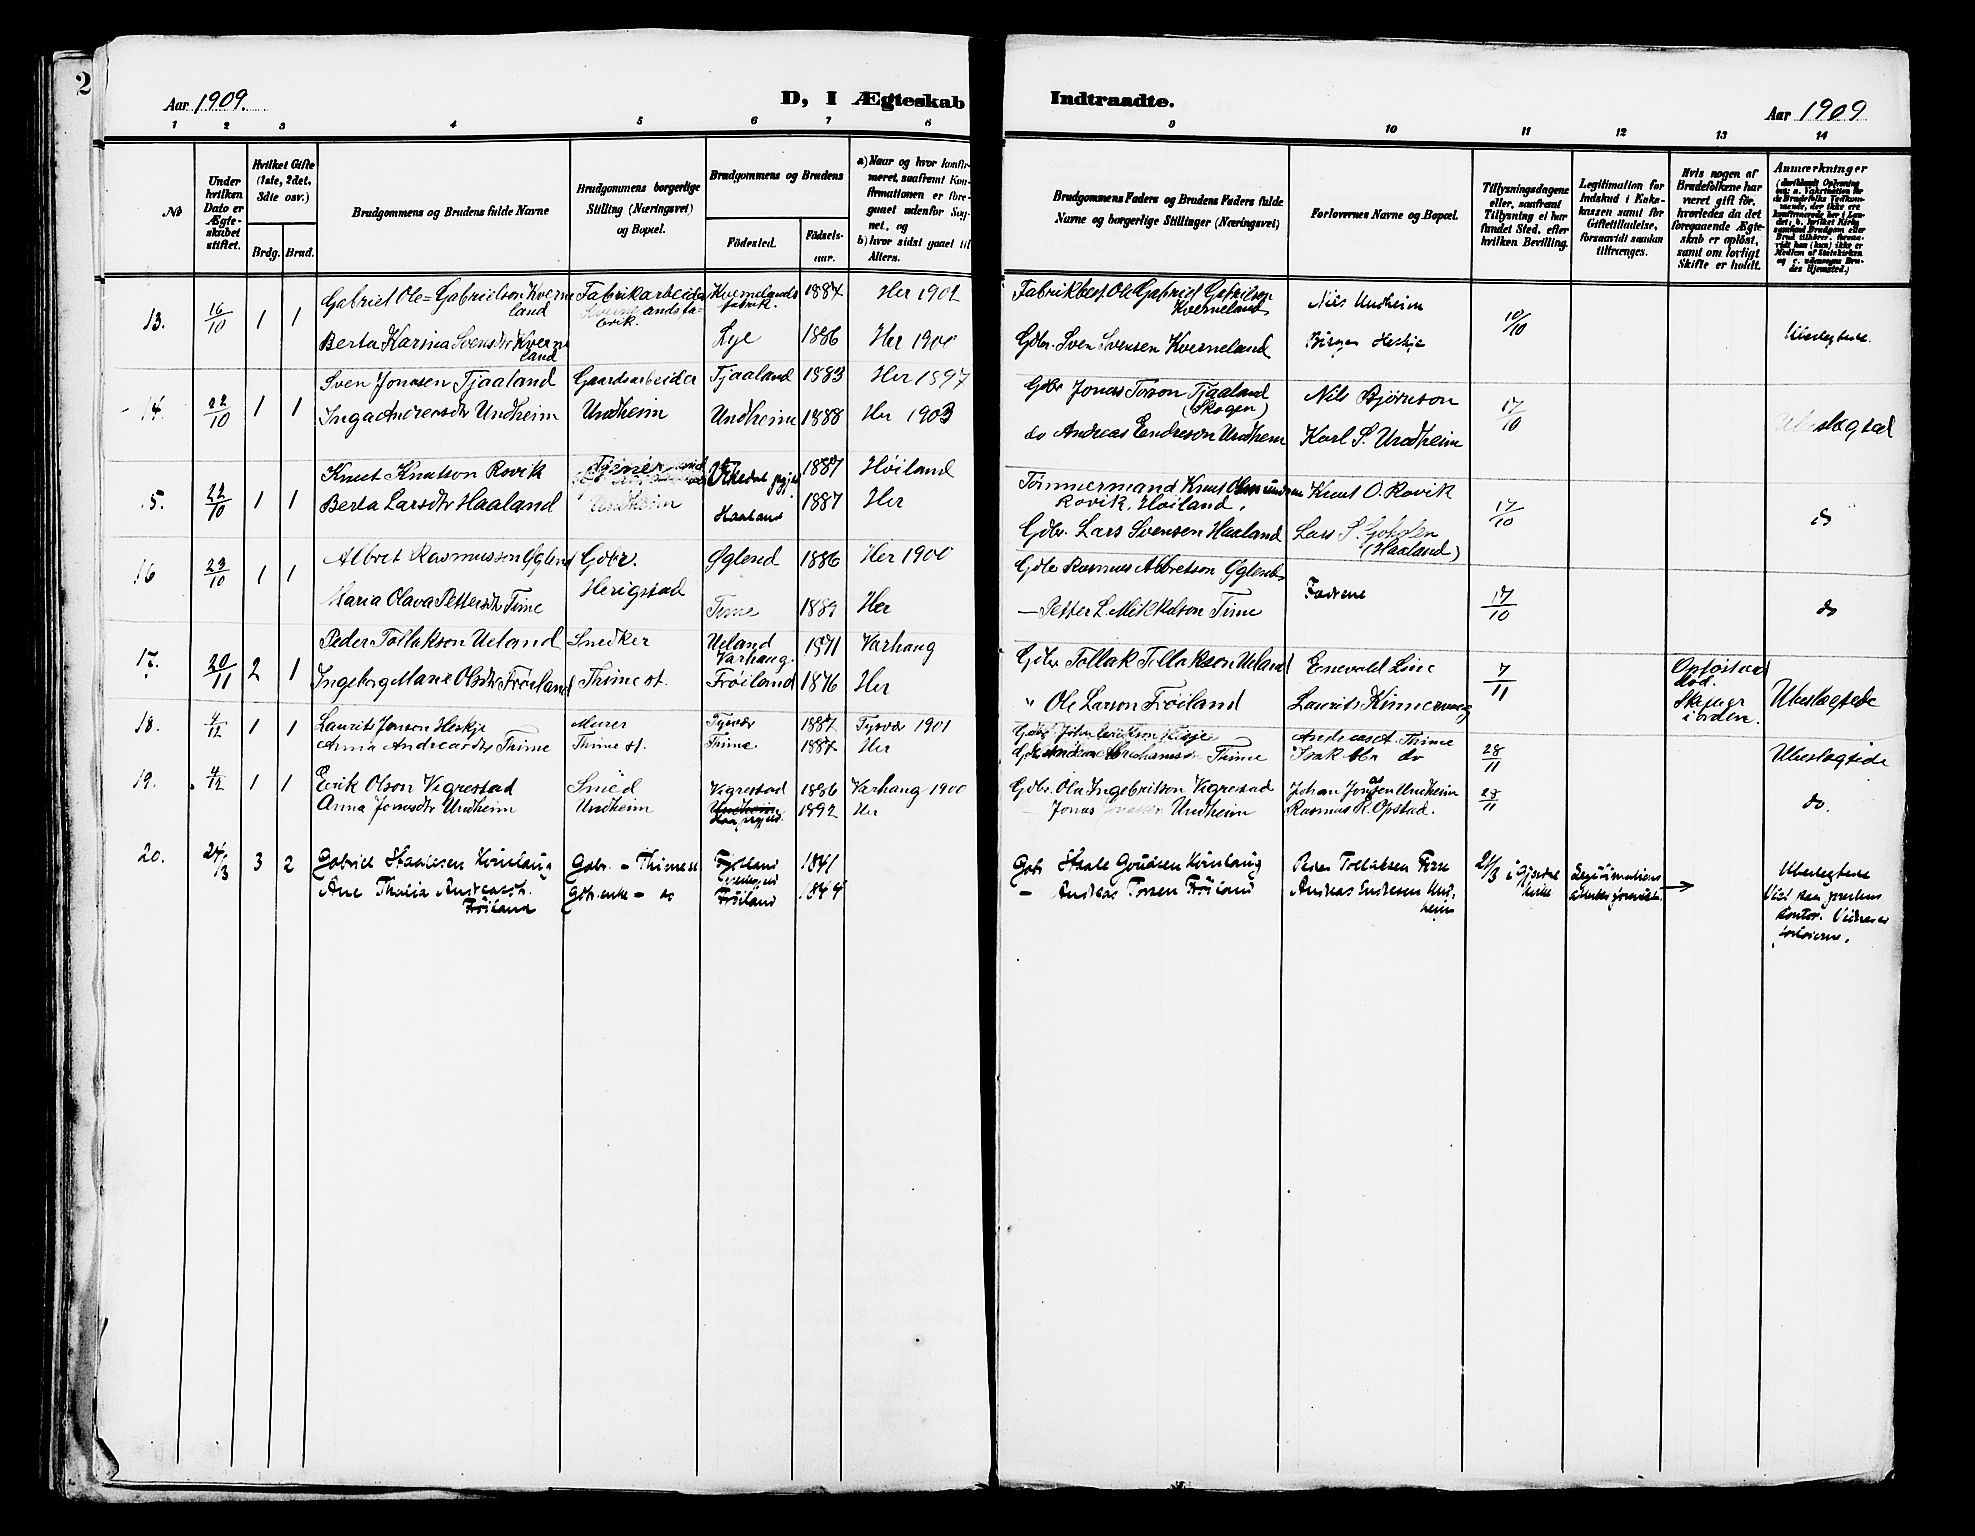 2
Aar 1909.
D, I Ægteskab
Indtraadte.
Aar 1909
1 2 3 4 5 6 7 8
9 10 11 12 13 14
№
Under hvilken Dato er Ægteskabet stiftet.
Hvilket Gifte (1ste, 2det, 3die osv.)
Brdg. Brud.
Brudgommens og Brudens fulde Navne
Brudgommens borgerlige Stilling (Næringsvei) og Bopæl.
Brudgommens og Brudens
Födested.
Födselsaar.
a) Naar og hvor konfirmeret, saafremt Konfirmationen er foregaaet udenfor Sognet, og
b) hvor sidst gaaet til Alters.
Brudgommens Faders og Brudens Faders fulde Navne og borgerlige Stillinger (Næringsvei)
Forlovernes Navne og Bopæl.
Tillysningsdagene eller, saafremt Tillysning ei har fundet Sted, efter hvilken Bevilling.
Legitimation for Indskud i Enkekassen samt for Giftetilladelse, forsaavidt saadan tiltrænges.
Hvis nogen af Brudefolkene har været gift før, hvorledes da det foregaaende Ægteskab er oplöst, samt om lovligt Skifte er holdt.
Anmærkninger
13. 16/10 1 1
Gabriel Ole=Gabrielson Kverneland
Fabrikarbeider
Kvernelands fabrik.
1887
Her 1902
Fabrikbest. Ole Gabriel Gabrielson Kverneland
Nils Undheim
10/10
Berta Karina Svensdtr Kverneland
Lye
1886
Her 1900
Gdbr. Sven Svensen Kverneland
Birger Heskje
Ubeslegtede.
14. 22/10 1 1
Sven Jonasen Tjaaland
Gaardsarbeider
Tjaaland
1883
Her 1897
Gdbr Jonas Torson Tjaaland (Skogen)
Nils Björnson
17/10
Inga Andreasdtr Undheim
Undheim
Undheim
1888
Her 1903
do Andreas Endreson Undheim
Karl S. Undheim
Ubeslægtet
15. 22/10 1 1
Knut Knutson Rovik
1887
Höiland
Tömmermand Knut Omundsen
Rovik, Höiland,
Knut O. Rovik
17/10
Berta Larsdtr Haaland
Undheim
Haaland
1887
Her
Gdbr. Lars Svensen Haaland
Lars S. (Haaland)
do
16 23/10 1 1
Albret Rasmusson Öglend
Gdbr.
Öglend
1886
Her 1900
Gdbr Rasmus Albretson Öglend
Fædrene
17/10
Maria Olava Pettersdtr Time
Herigstad
Time
1889
Her
— Petter L. Mikkelson Time
do
17. 20/11 2 1
Peder Tollakson Ueland
Snedker
Ueland Varhaug.
1871
Varhaug
Gdbr Tollak Tollakson Ueland
Enevald Line
7/11
Opløst ved död. Skifte i orden.
Ingeborg Marie Olsdtr Fröiland
Thime st.
Fröiland
1876
Her
" Ole Larson Fröiland
Laurits Kinnerveg
Ubeslægtede
18. 4/12 1 1
Laurits Jonson Heskje
Murer
Tysvær
1887
Tysvær 1901
Andreas A. Thime
28/11
Anna Andreasdtr Thime
Thime st.
Thime
1887
Her
Andreas Abrahamson Thime
Isak do
Ubeslegtede
19. 4/12 1 1
Eirik Olson Vigrestad
Smed
Vigrestad
1886
Varhaug 1900
Gdbr. Ola Ingebritson Vigrestad
Johan Undheim
28/11
Anna Jonasdtr Undheim
Undheim
Undheim
1892
Her
— Jonas Undheim
Rasmus R. Opstad.
do.
20. 24/3 3 2
Gabriel Haalesen
Gdbr. - Thime st
1841
Gdbr Haale
Peder Tollaksen
21/3 i Gjesdal kirke
Ubeslegtede
Ane Thalia Andreasdt. Fröiland
Gdbr.enke — do
Fröiland
1844
— Andreas Torsen Fröiland
Andreas Endresen Undheim
Viet paa prestens kontor.